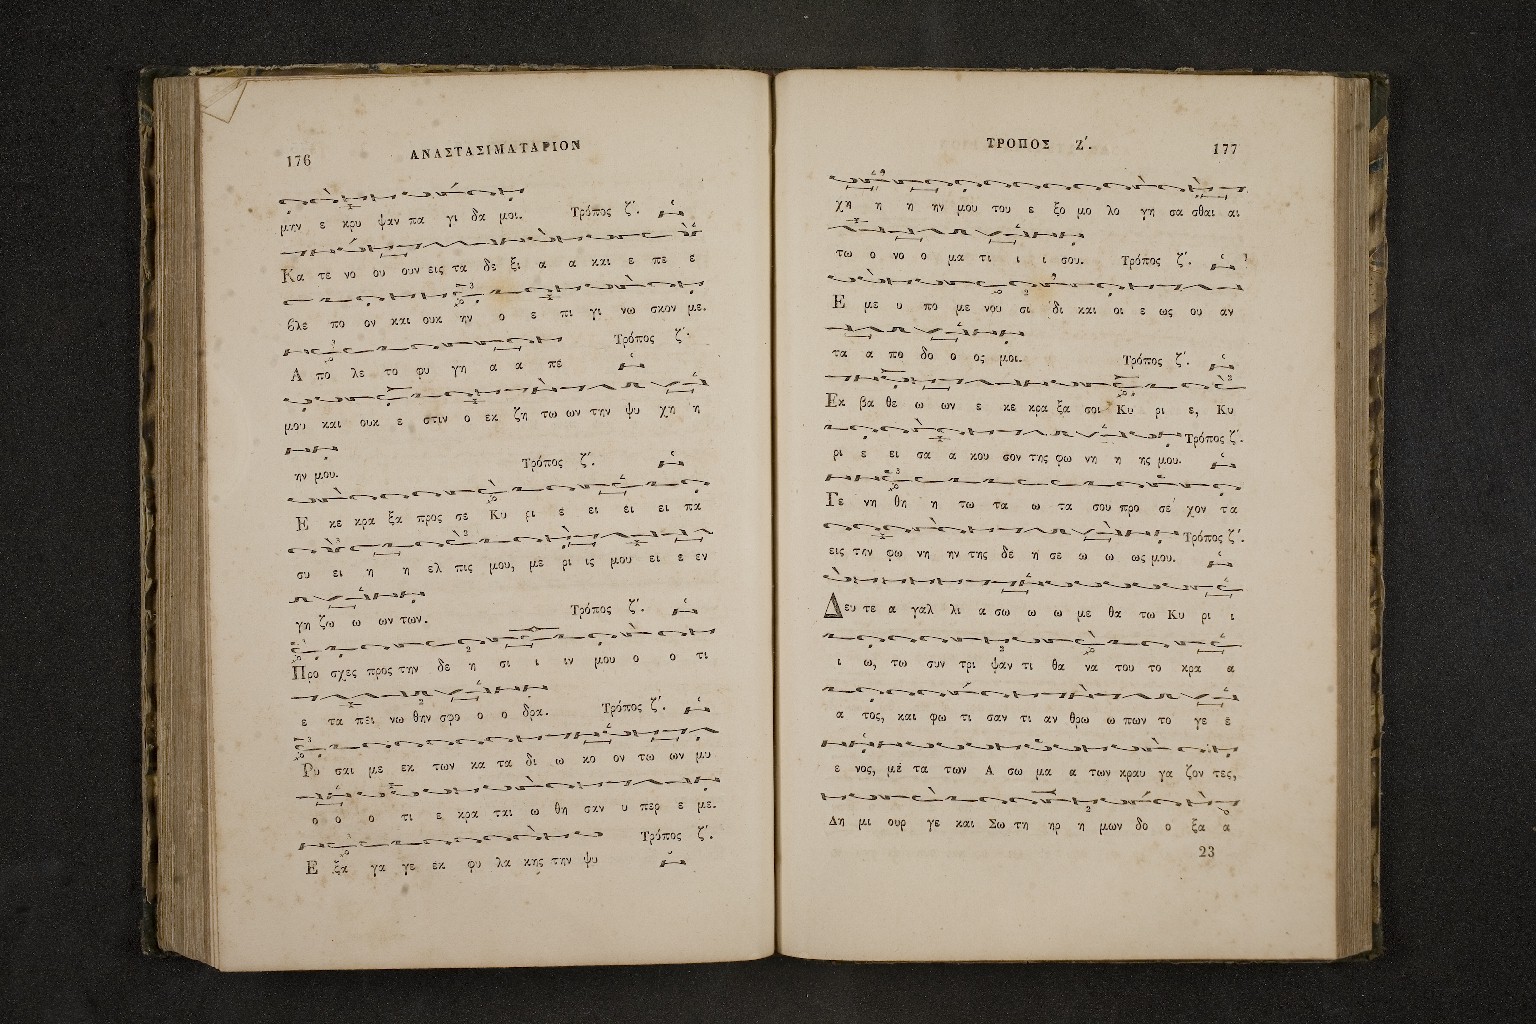 176 ΑΝΑΣΤΑΣΙΜΑΤΑΡΙΟΝ
μην ε κρυ ψαν πα γι δα μοι. Τρόπος ζ΄.
Κα τε νο ου ουν εις τα δε ξι α α και ε πε ε
βλε πο ον και ουκ ην ο ε πι γι νω σκον με.
Α πο λε το φυ γη α α πε Τρόπος ζ΄.
μου και ουκ ε στιν ο εκ ζη τω ων την ψυ χη η
ην μου. Τρόπος ζ΄.
Ε κε κρα ξα προς σε Κυ ρι ε ει ει ει πα
συ ει η η ελ πις μου, με ρι ις μου ει ε εν
γη ζω ω ων των. Τρόπος ζ΄.
Προ σχες προς την δε η σι ι ιν μου ο ο τι
ε τα πει νω θην σφο ο ο δρα. Τρόπος ζ΄.
Ρυ σαι με εκ των κα τα δι ω κο ον τω ων μυ
ο ο ο τι ε κρα ται ω θη σαν υ περ ε με.
Ε ξα γα γε εκ φυ λα κης την ψυ Τρόπος ζ΄.
ΤΡΟΠΟΣ Ζ΄. 177
χη η η ην μου του ε ξο μο λο γη σα σθαι αι
τω ο νο ο μα τι ι ι σου. Τρόπος ζ΄.
Ε με υ πο με νου σι δι και οι ε ως ου αν
τα α πο δο ο ος μοι. Τρόπος ζ΄.
Εκ βα θε ω ων ε κε κρα ξα σοι Κυ ρι ε, Κυ
ρι ε ει σα α κου σον της φω νη η ης μου. Τρόπος ζ΄.
Γε νη θη η τω τα ω τα σου προ σε χον τα
εις την φω νη ην της δε η σε ω ω ως μου. Τρόπος ζ΄.
Δευ τε α γαλ λι α σω ω ω με θα τω Κυ ρι ι
ι ω, τω συν τρι ψαν τι θα να του το κρα α
α τος, και φω τι σαν τι αν θρω ω πων το γε ε
ε νος, με τα των Α σω μα α των κραυ γα ζον τες,
Δη μι ουρ γε και Σω τη ηρ η μων δο ο ξα α
23